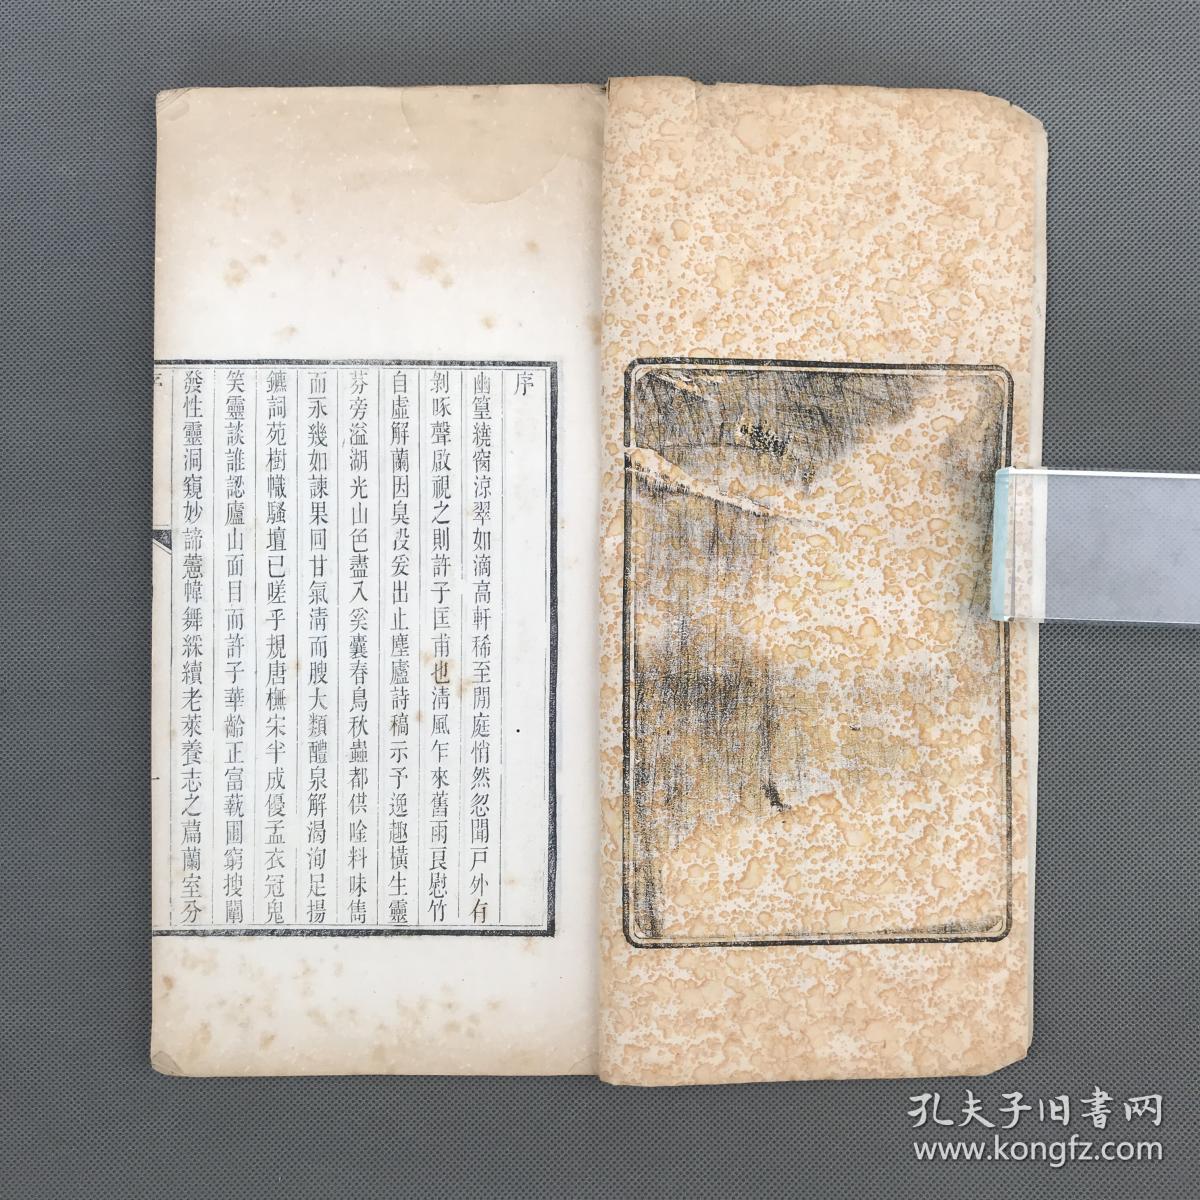 序
幽篁繞窗涼翠如滴高軒稀至閒庭悄然忽聞戸外有
剝啄聲啟視之則許子匡甫也清風乍來舊雨良慰竹
自虛解蘭因臭投爰出止塵廬詩稿示予逸趣橫生靈
芬旁溢湖光山色盡入奚囊春鳥秋蟲都供唫料味雋
而永幾如諫果回甘氣清而腴大類醴泉解渴洵足揚
鑣詞苑樹幟騷壇已嗟乎規唐橅宋半成優孟衣冠鬼
笑靈談誰認廬山面目而許子華齡正富蓺圃窮搜闡
發性靈洞窺妙諦藼幃舞綵續老萊養志之篇蘭室分
序
孔夫子旧书网
www.kongfz.com